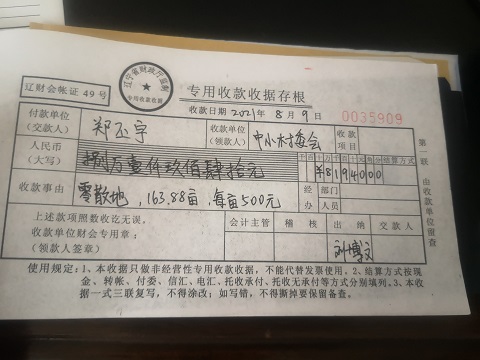 辽财会帐证 49号
辽宁省财政厅监制
专用收款收据
专用收款收据存根
收款日期 2021年8月9日
0035909
付款单位(交款人) 郑玉宇 收款单位(领款人) 中小村委会 收款项目
人民币(大写) 捌万壹仟玖佰肆拾元 千百十万千百十元角分 ¥8194000 结算方式
收款事由 零散地，163.88亩，每亩500元 经办 部门 人员
上述款项照数收讫无误。
收款单位财会专用章：
(领款人签章)
会计主管 稽核 出纳 交款人
刘博文
第一联 由收款单位留查
使用规定：1、本收据只做非经营性专用收款收据，不能代替发票使用。2、结算方式按现
金、转帐、付委、信汇、电汇、托收承付、托收无承付等方式分别填列。3、本收
据一式三联复写，不得涂改；如写错，不得撕掉要保留备查。